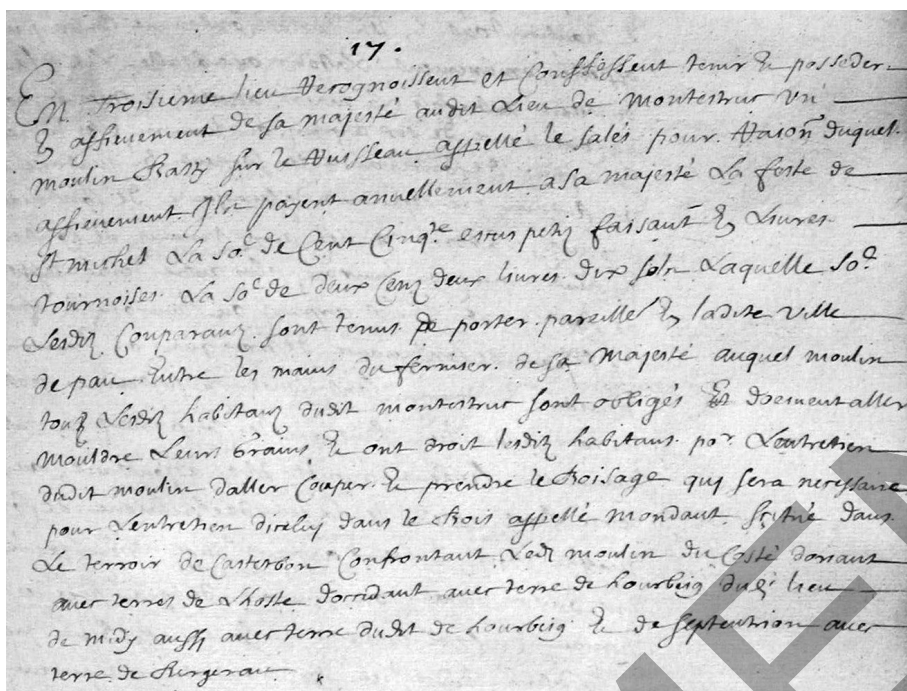 17.
En Troisieme lieu Recognoissent et Conffessent tenir et posseder
En affievement de sa majesté audit Lieu de montestruc un
moulin Bastÿ sur le Ruisseau appellé le salés pour Raion duquel
affievement Ils payent annuellement a sa majesté La feste de
st michel La soe de Cent Cinqte escus petis faisant En Livres
tournoises La soe de deux Cens deux livres dix sols Laquelle soe
Lesdits Comparans sont tenus de porter pareille En ladite ville
de pau Entre les mains du fermier de sa Majesté auquel moulin
tous Lesdits habitans dudit montestruc sont obligés Et doivent aller
mouldre Leurs Grains Et ont droit lesdits habitans por Lentretien
dudit moulin daller Couper Et prendre le Boisage quy sera necessaire
pour Lentretien diceluy dans le Bois appellé mondaut scitué dans
Le terroir de Casterbon Confrontant Ledt moulin du Costé doriant
avec terres de Lhoste doccidant avec terre de hourbeig dudt lieu
de midy aussy avec terre dudit de hourbeig Et de septentrion avec
terre de Bergerau